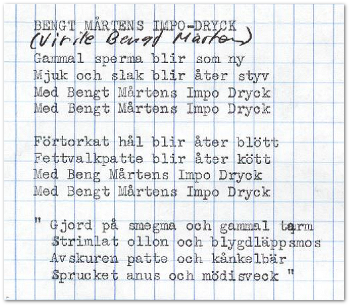 BENGT MÅRTENS IMPO-DRYCK
(Virile Bengt Mårten)
Gammal sperma blir som ny
Mjuk och slak blir åter styv
Med Bengt Mårtens Impo Dryck
Med Bengt Mårtens Impo Dryck
Förtorkat hål blir åter blött
Fettvalkpatte blir åter kött
Med Beng Mårtens Impo Dryck
Med Bengt Mårtens Impo Dryck
" Gjord på smegma och gammal tarm
Strimlat ollon och blygdläppsmos
Avskuren patte och kånkelbär
Sprucket anus och mödisveck "